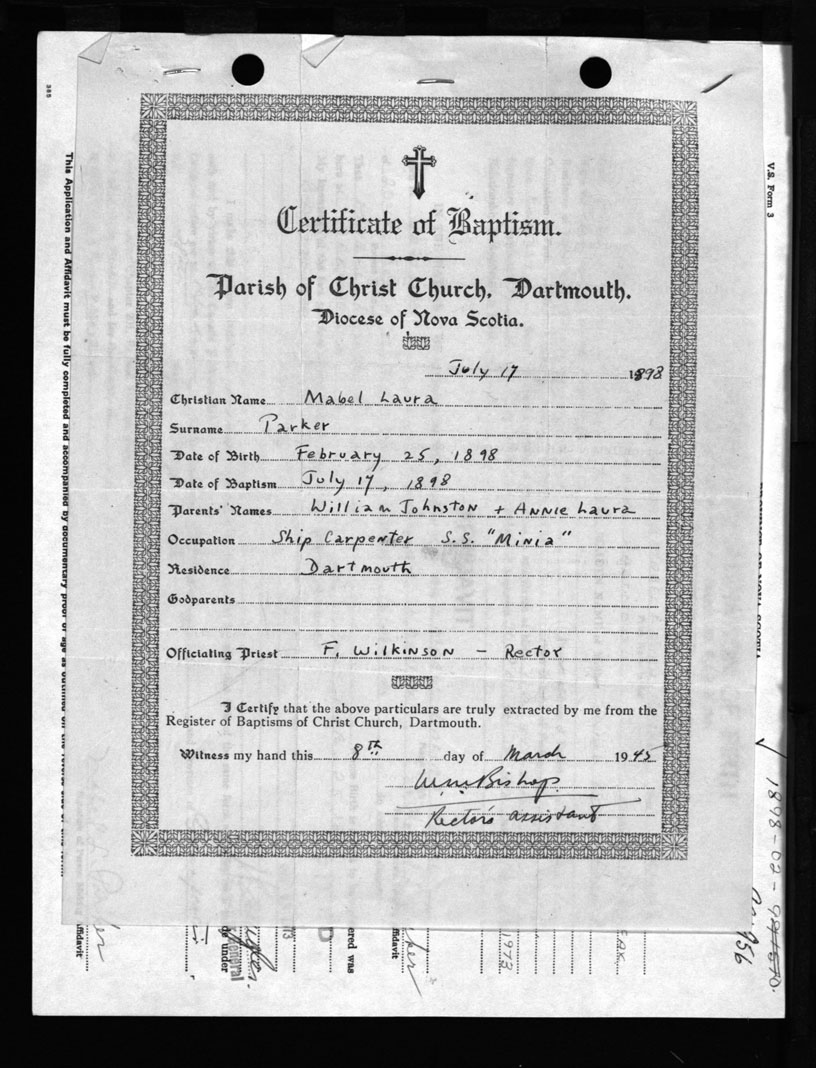 385
This Application and Affidavit must be fully completed and accompanied by documentary proof of age as outlined on the reverse side of this form.
V.S. Form 3
Certificate of Baptism.
Parish of Christ Church, Dartmouth.
Diocese of Nova Scotia.
July 17 1898
Christian Name Mabel Laura
Surname Parker
Date of Birth February 25, 1898
Date of Baptism July 17, 1898
Parents' Names William Johnston + Annie Laura
Occupation Ship Carpenter S.S. "Minia"
Residence Dartmouth
Godparents
Officiating Priest F. Wilkinson - Rector
I Certify that the above particulars are truly extracted by me from the
Register of Baptisms of Christ Church, Dartmouth.
Witness my hand this 8th day of March 1945
W.M. Bishop
Rector's assistant
1898-02-
956
Affidavit
General
under
ered was
Affidavit